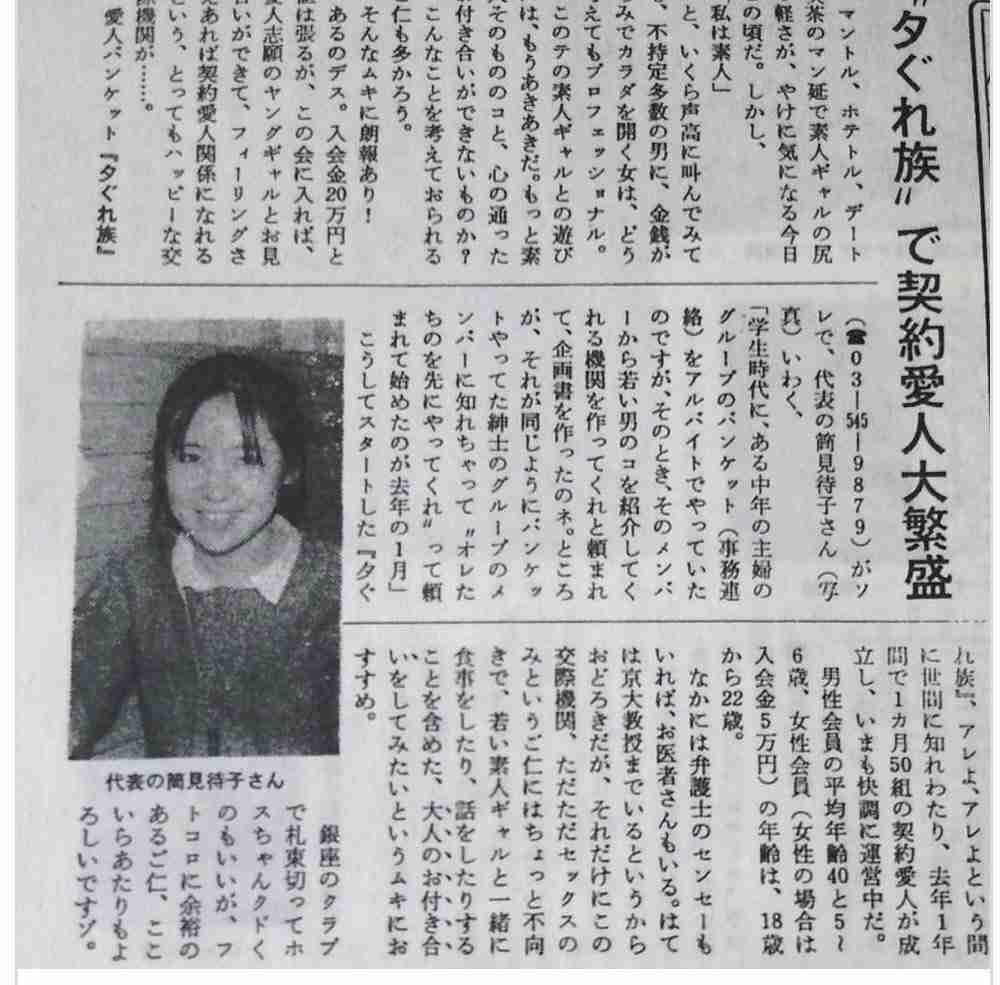 〝夕ぐれ族〟で契約愛人大繁盛
マントル、ホテトル、デート
喫茶のマン延で素人ギャルの尻
の軽さが、やけに気になる今日
この頃だ。しかし、
「私は素人」
と、いくら声高に叫んでみて
も、不持定多数の男に、金銭が
らみでカラダを開く女は、どう
考えてもプロフェッショナル。
このテの素人ギャルとの遊び
は、もうあきあきだ。もっと素
人そのもののコと、心の通った
お付き合いができないものか?
こんなことを考えておられる
ご仁も多かろう。
そんなムキに朗報あり!
あるのデス。入会金20万円と
値は張るが、この会に入れば、
愛人志願のヤングギャルとお見
合いができて、フィーリングさ
えあれば契約愛人関係になれる
という、とってもハッピーな交
際機関が……。
愛人バンケット『夕ぐれ族』
(☎03―545―9879)がソ
レで、代表の筒見待子さん(写
真)いわく、
「学生時代に、ある中年の主婦の
グループのバンケット(事務連
絡)をアルバイトでやっていた
のですが、そのとき、そのメンバ
ーから若い男のコを紹介してく
れる機関を作ってくれと頼まれ
て、企画書を作ったのネ。ところ
が、それが同じようにバンケッ
トやってた紳士のグループのメ
ンバーに知れちゃって〝オレた
ちのを先にやってくれ〟って頼
まれて始めたのが去年の1月」
こうしてスタートした『夕ぐ
れ族』、アレよ、アレよという間
に世間に知れわたり、去年1年
間で1カ月50組の契約愛人が成
立し、いまも快調に運営中だ。
男性会員の平均年齢40と5~
6歳、女性会員(女性の場合は
入会金5万円)の年齢は、18歳
から22歳。
なかには弁護士のセンセーも
いれば、お医者さんもいる。はて
は京大教授までいるというから
おどろきだが、それだけにこの
交際機関、ただただセックスの
みというご仁にはちょっと不向
きで、若い素人ギャルと一緒に
食事をしたり、話をしたりする
ことを含めた、大人のお付き合
いをしてみたいというムキにお
すすめ。
銀座のクラブ
で札束切ってホ
スちゃんクドく
のもいいが、フ
トコロに余裕の
あるご仁、ここ
いらあたりもよ
ろしいですゾ。
代表の筒見待子さん